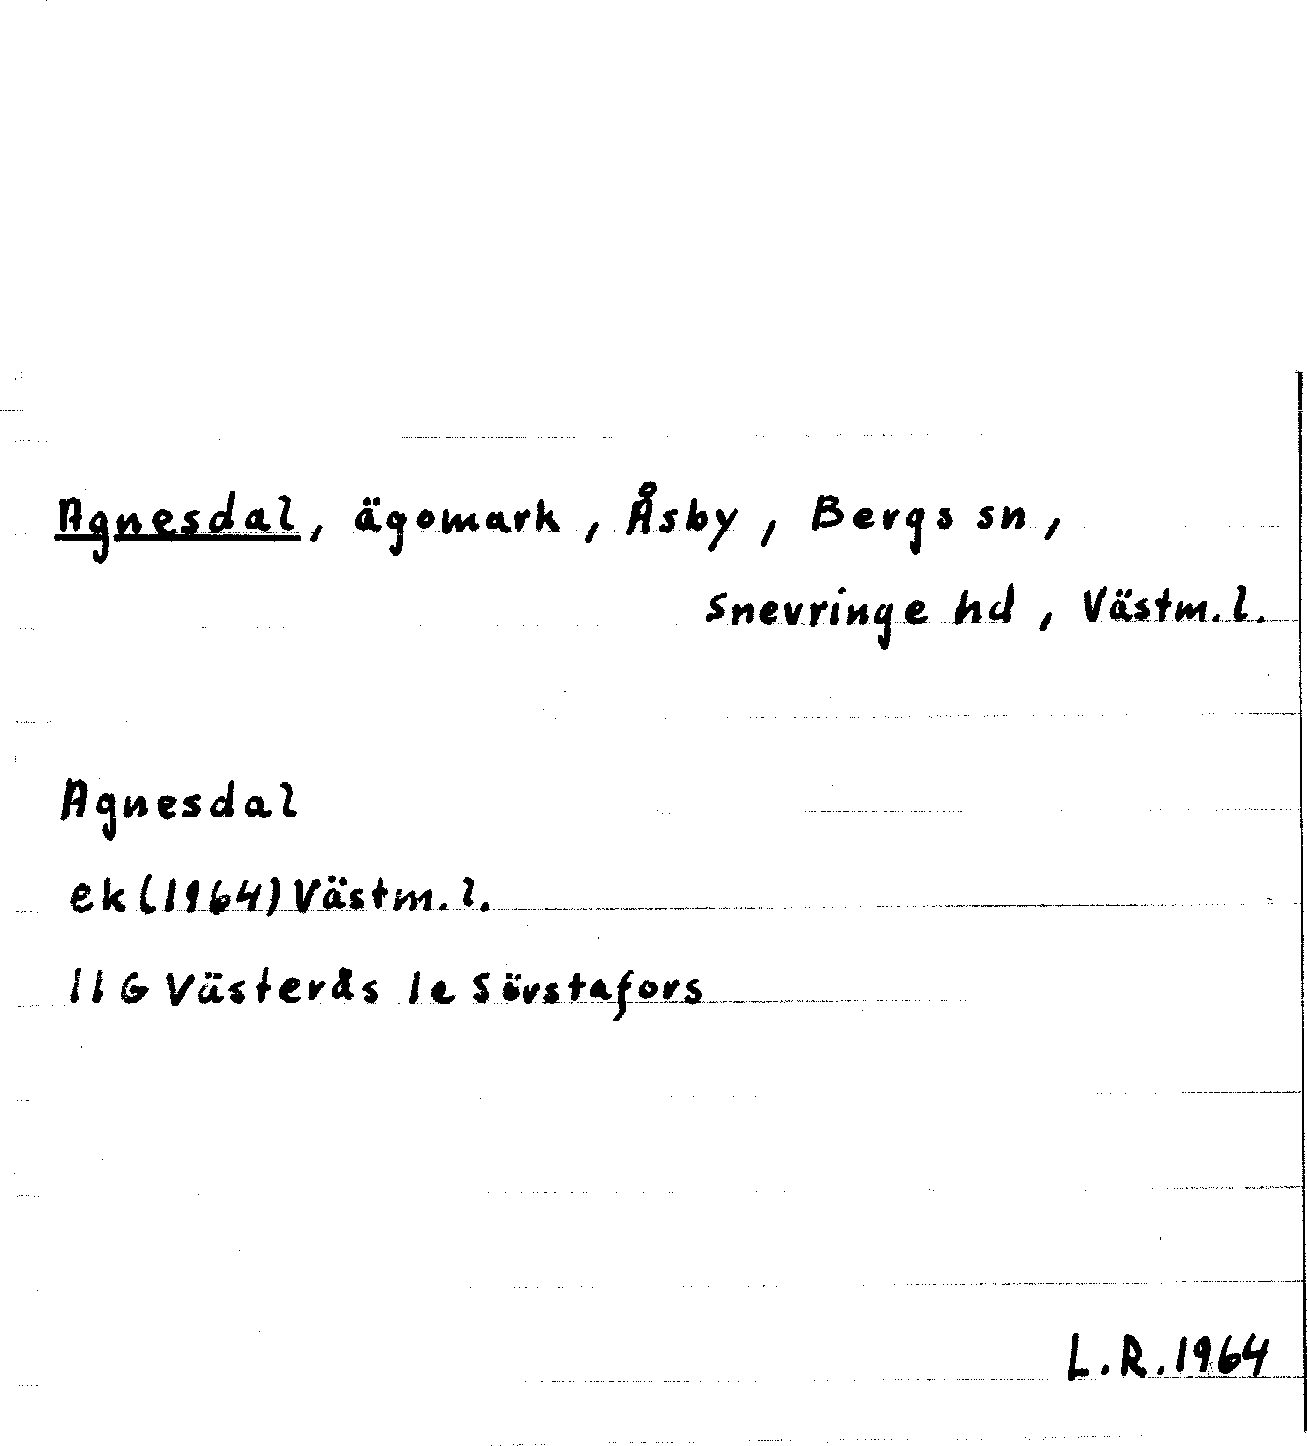 Agnesdal, ägomark, Åsby, Bergs sn,
Snevringe hd, Västm. l.
Agnesdal
ek (1964) Västm. l.
11G Västerås 1e Sörstafors
L.R. 1964